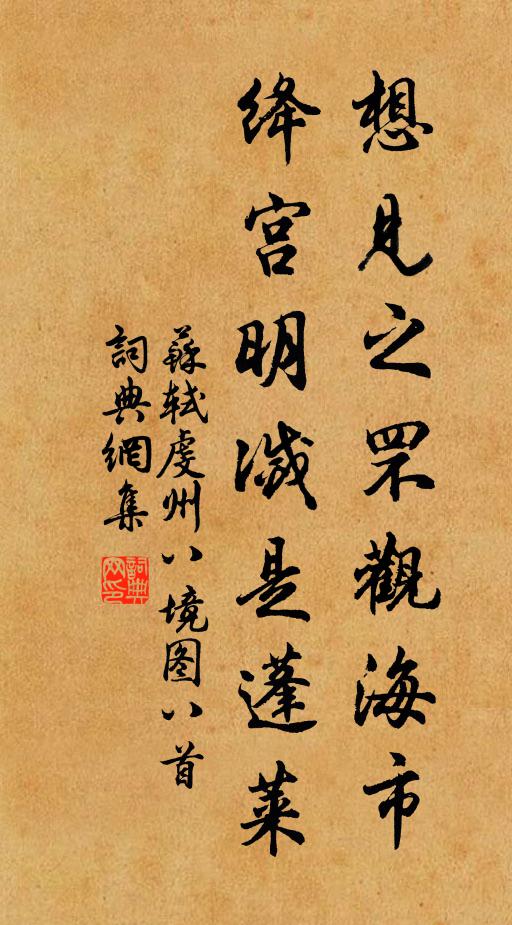 想見之罘觀海市
绛宫明滅是蓬莱
蘇軾虔州八境图八首
詞典網集
詞典网印